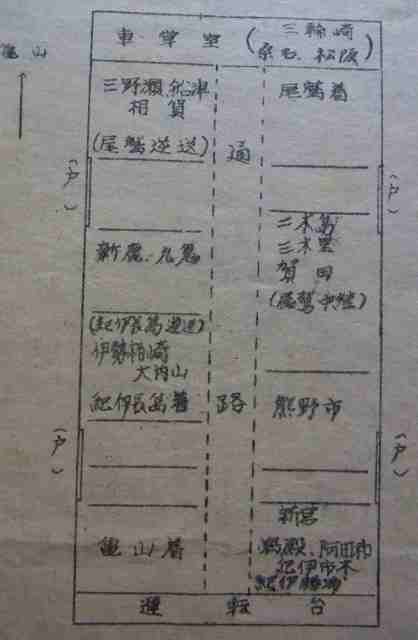 車掌室
(三輪崎
桑名、松阪)
亀山
三野瀬 船津
相賀
(尾鷲逆送)
尾鷲着
通
(戸)
(戸)
新鹿、九鬼
二木島
三木里
賀田
(尾鷲中継)
(紀伊長島逆送)
伊勢柏崎
大内山
紀伊長島着
路
熊野市
(戸)
(戸)
亀山着
新宮
鵜殿、阿田和
紀伊市木
紀伊勝浦
運転台